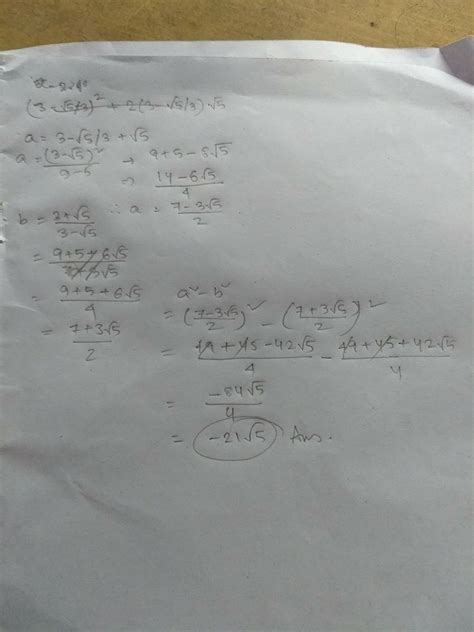 (3-√5/3)² + 2(3-√5/3)√5
a = 3-√5/3+√5
a = (3-√5)²/9-5 → 9+5-6√5
→ 14-6√5/4
b = 3+√5/3-√5 ∴ a = 7-3√5/2
= 9+5+6√5
= 9+5+6√5/4
= 7+3√5/2
a²-b²
= (7-3√5/2)² - (7+3√5/2)²
= 49+45-42√5/4 - 49+45+42√5/4
= -84√5/4
= -21√5 Ans.